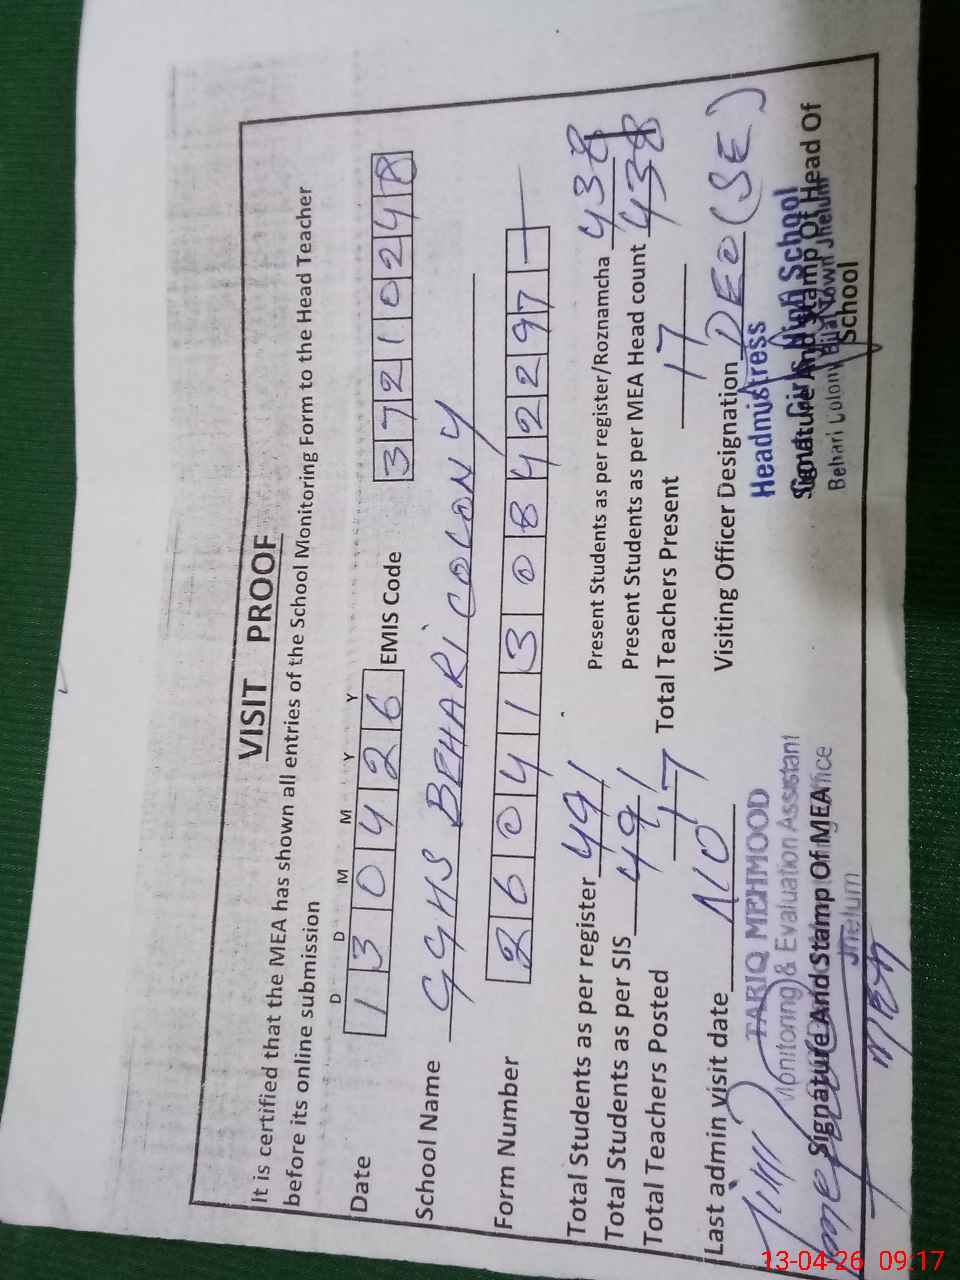 VISIT PROOF
It is certified that the MEA has shown all entries of the School Monitoring Form to the Head Teacher
before its online submission
D D M M Y Y
Date 1 3 0 4 2 6 EMIS Code 3 7 2 1 0 2 4 8
School Name GGHS BEHARI COLONY
Form Number 2 6 0 4 1 3 0 8 4 2 2 9 7 -
Total Students as per register 491 Present Students as per register/Roznamcha 438
Total Students as per SIS 491 Present Students as per MEA Head count 438
Total Teachers Posted 17 Total Teachers Present 17
Last admin visit date NO Visiting Officer Designation DEO (SE)
TARIQ MEHMOOD
Monitoring & Evaluation Assistant
Signature And Stamp Of MEA
Jhelum
MEA
Headmistress
Govt. Girls High School
Behari Colony Bilal Town Jhelum
Signature And Stamp Of Head Of
School
13-04-26 09:17